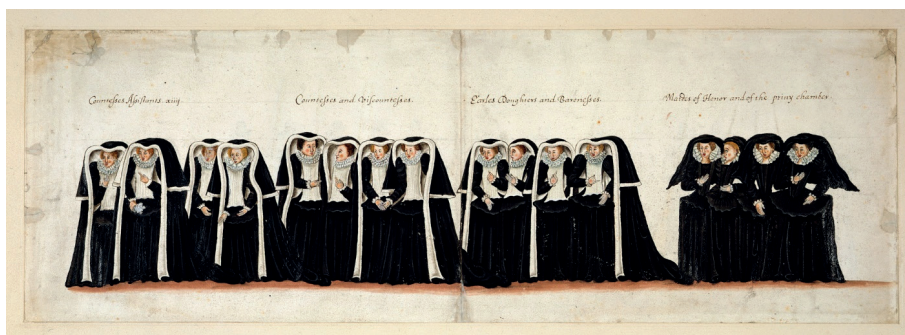 Countesses Assistants. xiiij.
Countesses and Viscountesses.
Earles Doughters and Baronesses.
Maides of Honor and of the privy chamber.